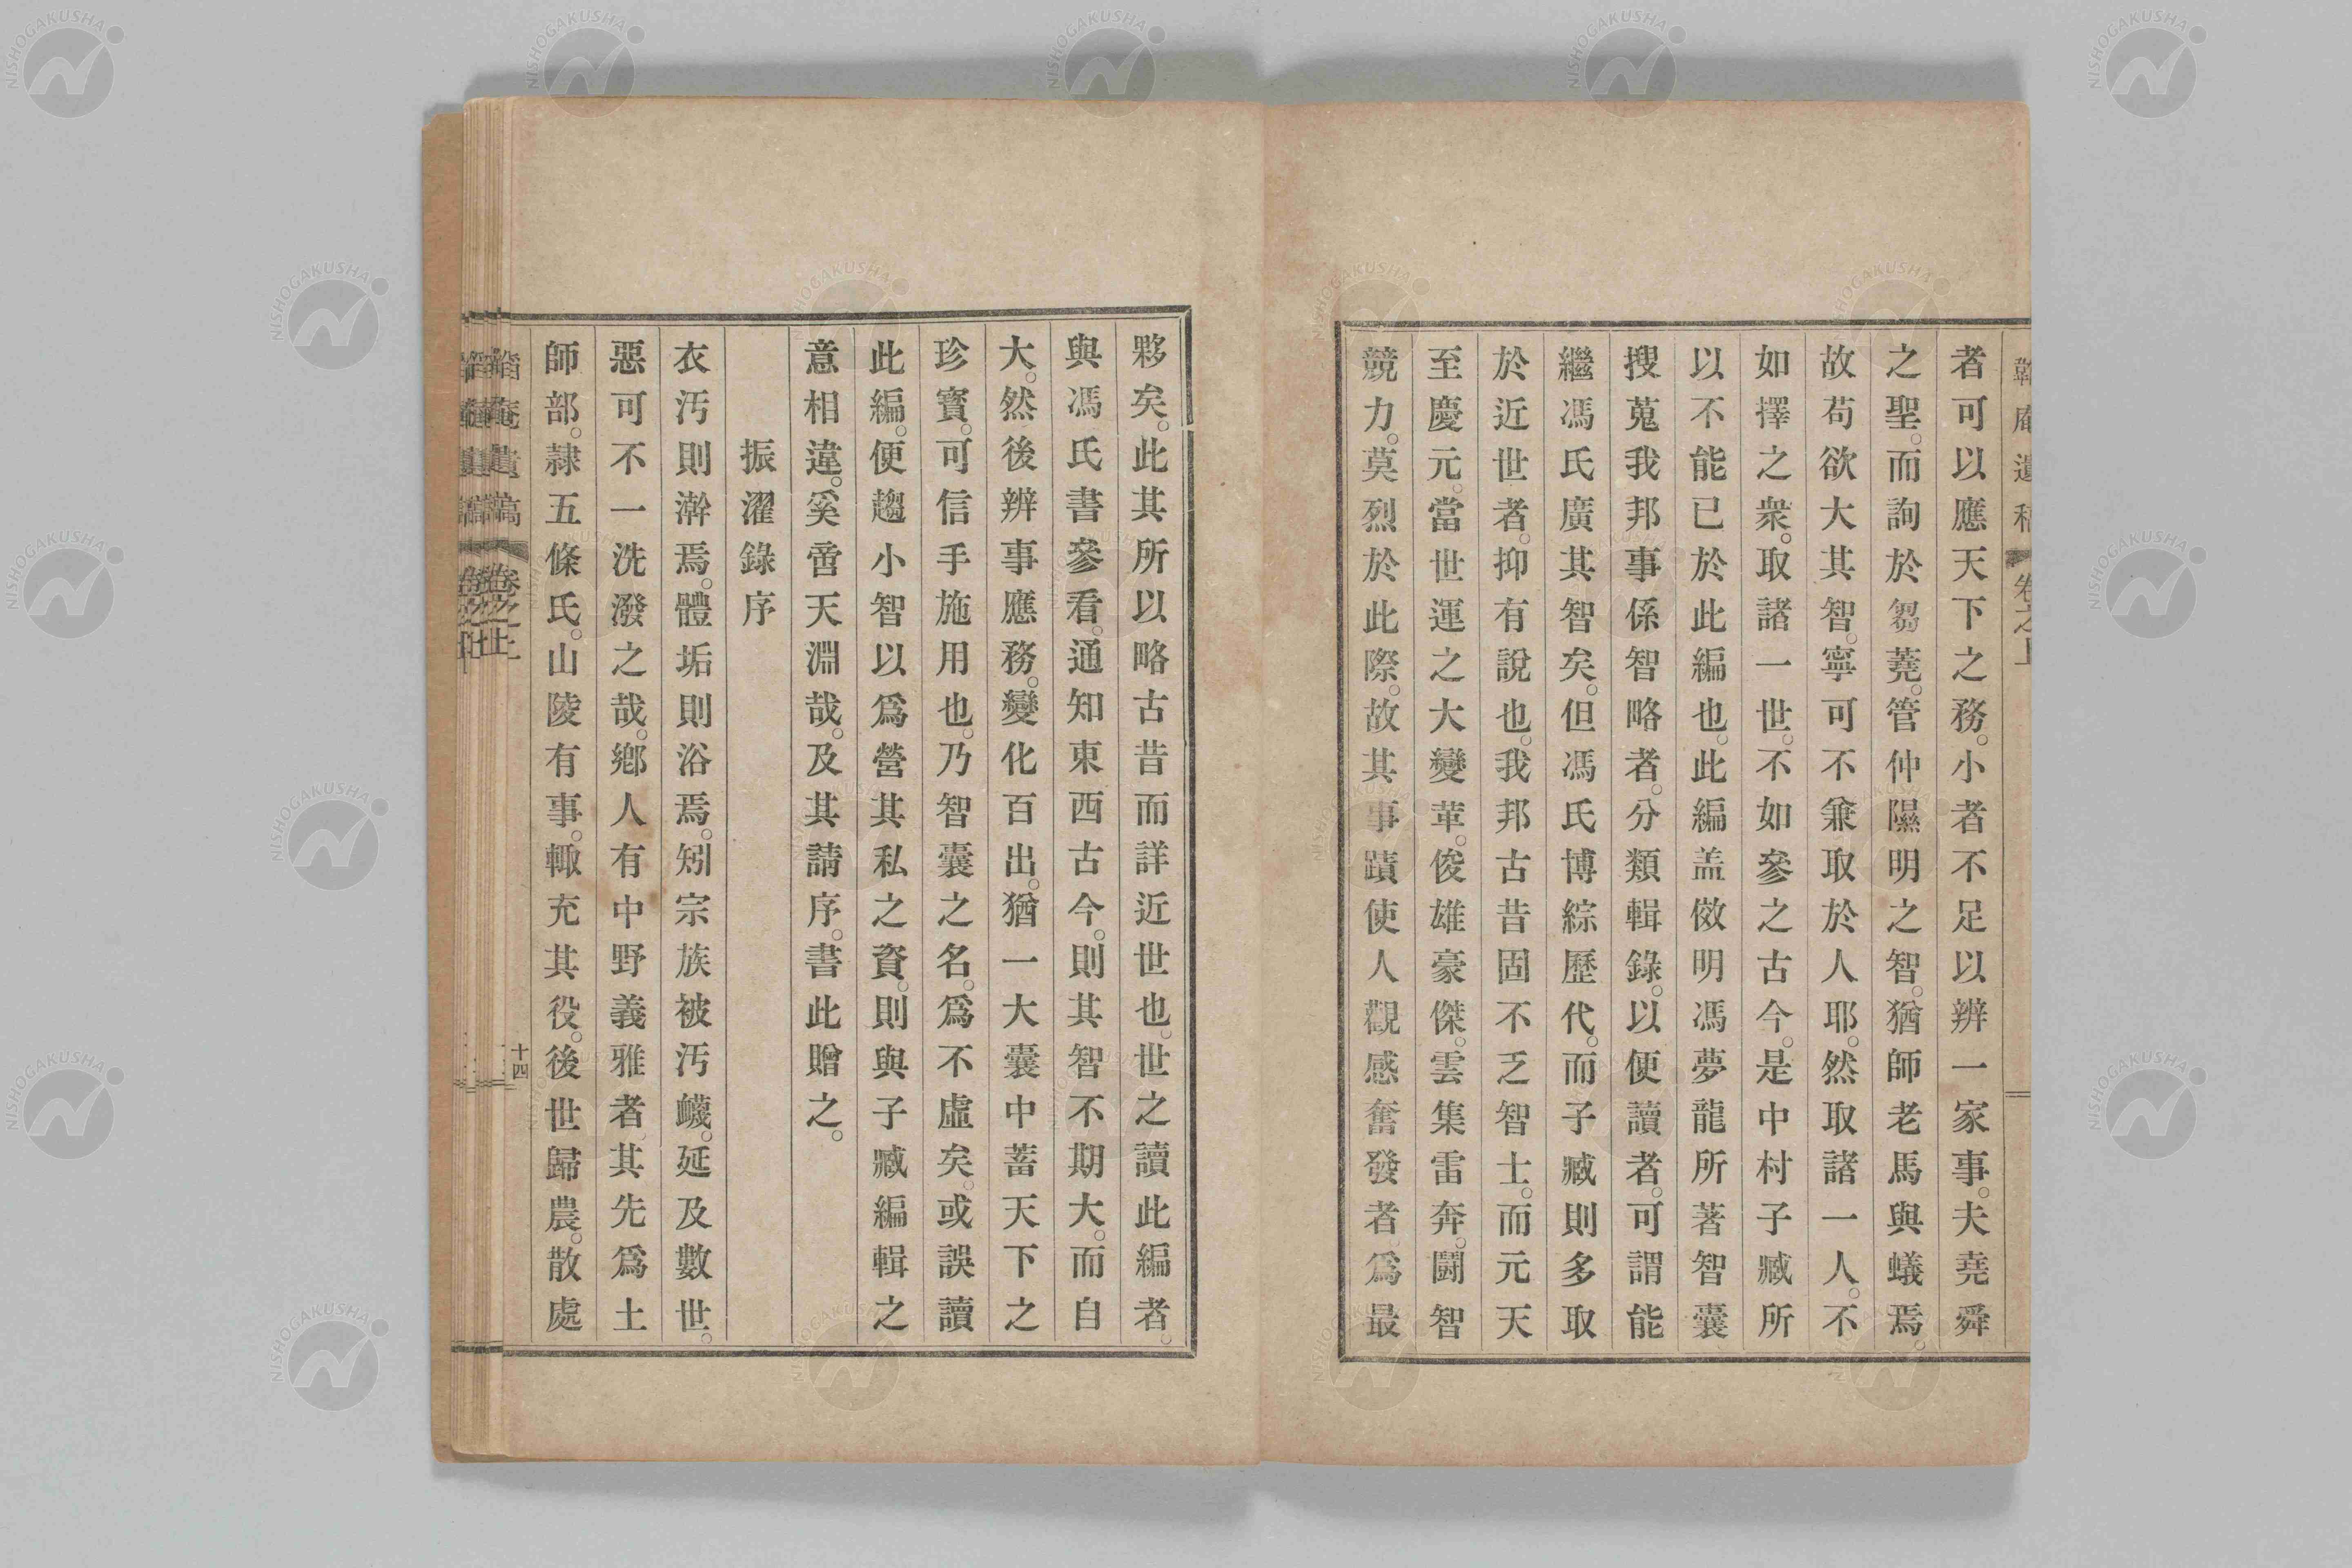 者可以應天下之務。小者不足以辨一家事。夫堯舜
之聖。而詢於芻蕘。管仲隰明之智。猶師老馬與蟻焉。
故苟欲大其智。寧可不兼取於人耶。然取諸一人。不
如擇之衆。取諸一世。不如參之古今。是中村子臧所
以不能已於此編也。此編盖倣明馮夢龍所著智囊
搜蒐我邦事係智略者。分類輯錄。以便讀者。可謂能
繼馮氏廣其智矣。但馮氏博綜歷代。而子臧則多取
於近世者。抑有說也。我邦古昔固不乏智士。而元天
至慶元。當世運之大變革。俊雄豪傑。雲集雷奔。鬪智
競力。莫烈於此際。故其事蹟使人觀感奮發者爲最
夥矣。此其所以略古昔而詳近世也。世之讀此編者。
與馮氏書參看。通知東西古今。則其智不期大。而自
大。然後辨事應務。變化百出。猶一大囊中蓄天下之
珍寶。可信手施用也。乃智囊之名。爲不虛矣。或誤讀
此編。便趨小智以爲營其私之資。則與子臧編輯之
意相違。奚啻天淵哉。及其請序。書此贈之。
振濯錄序
衣汚則澣焉。體垢則浴焉。矧宗族被汚衊。延及數世。
惡可不一洗潑之哉。鄕人有中野義雅者。其先爲土
師部。隷五條氏。山陵有事。輙充其役。後世歸農。散處
卷之上
十四
NISHOGAKUSHA